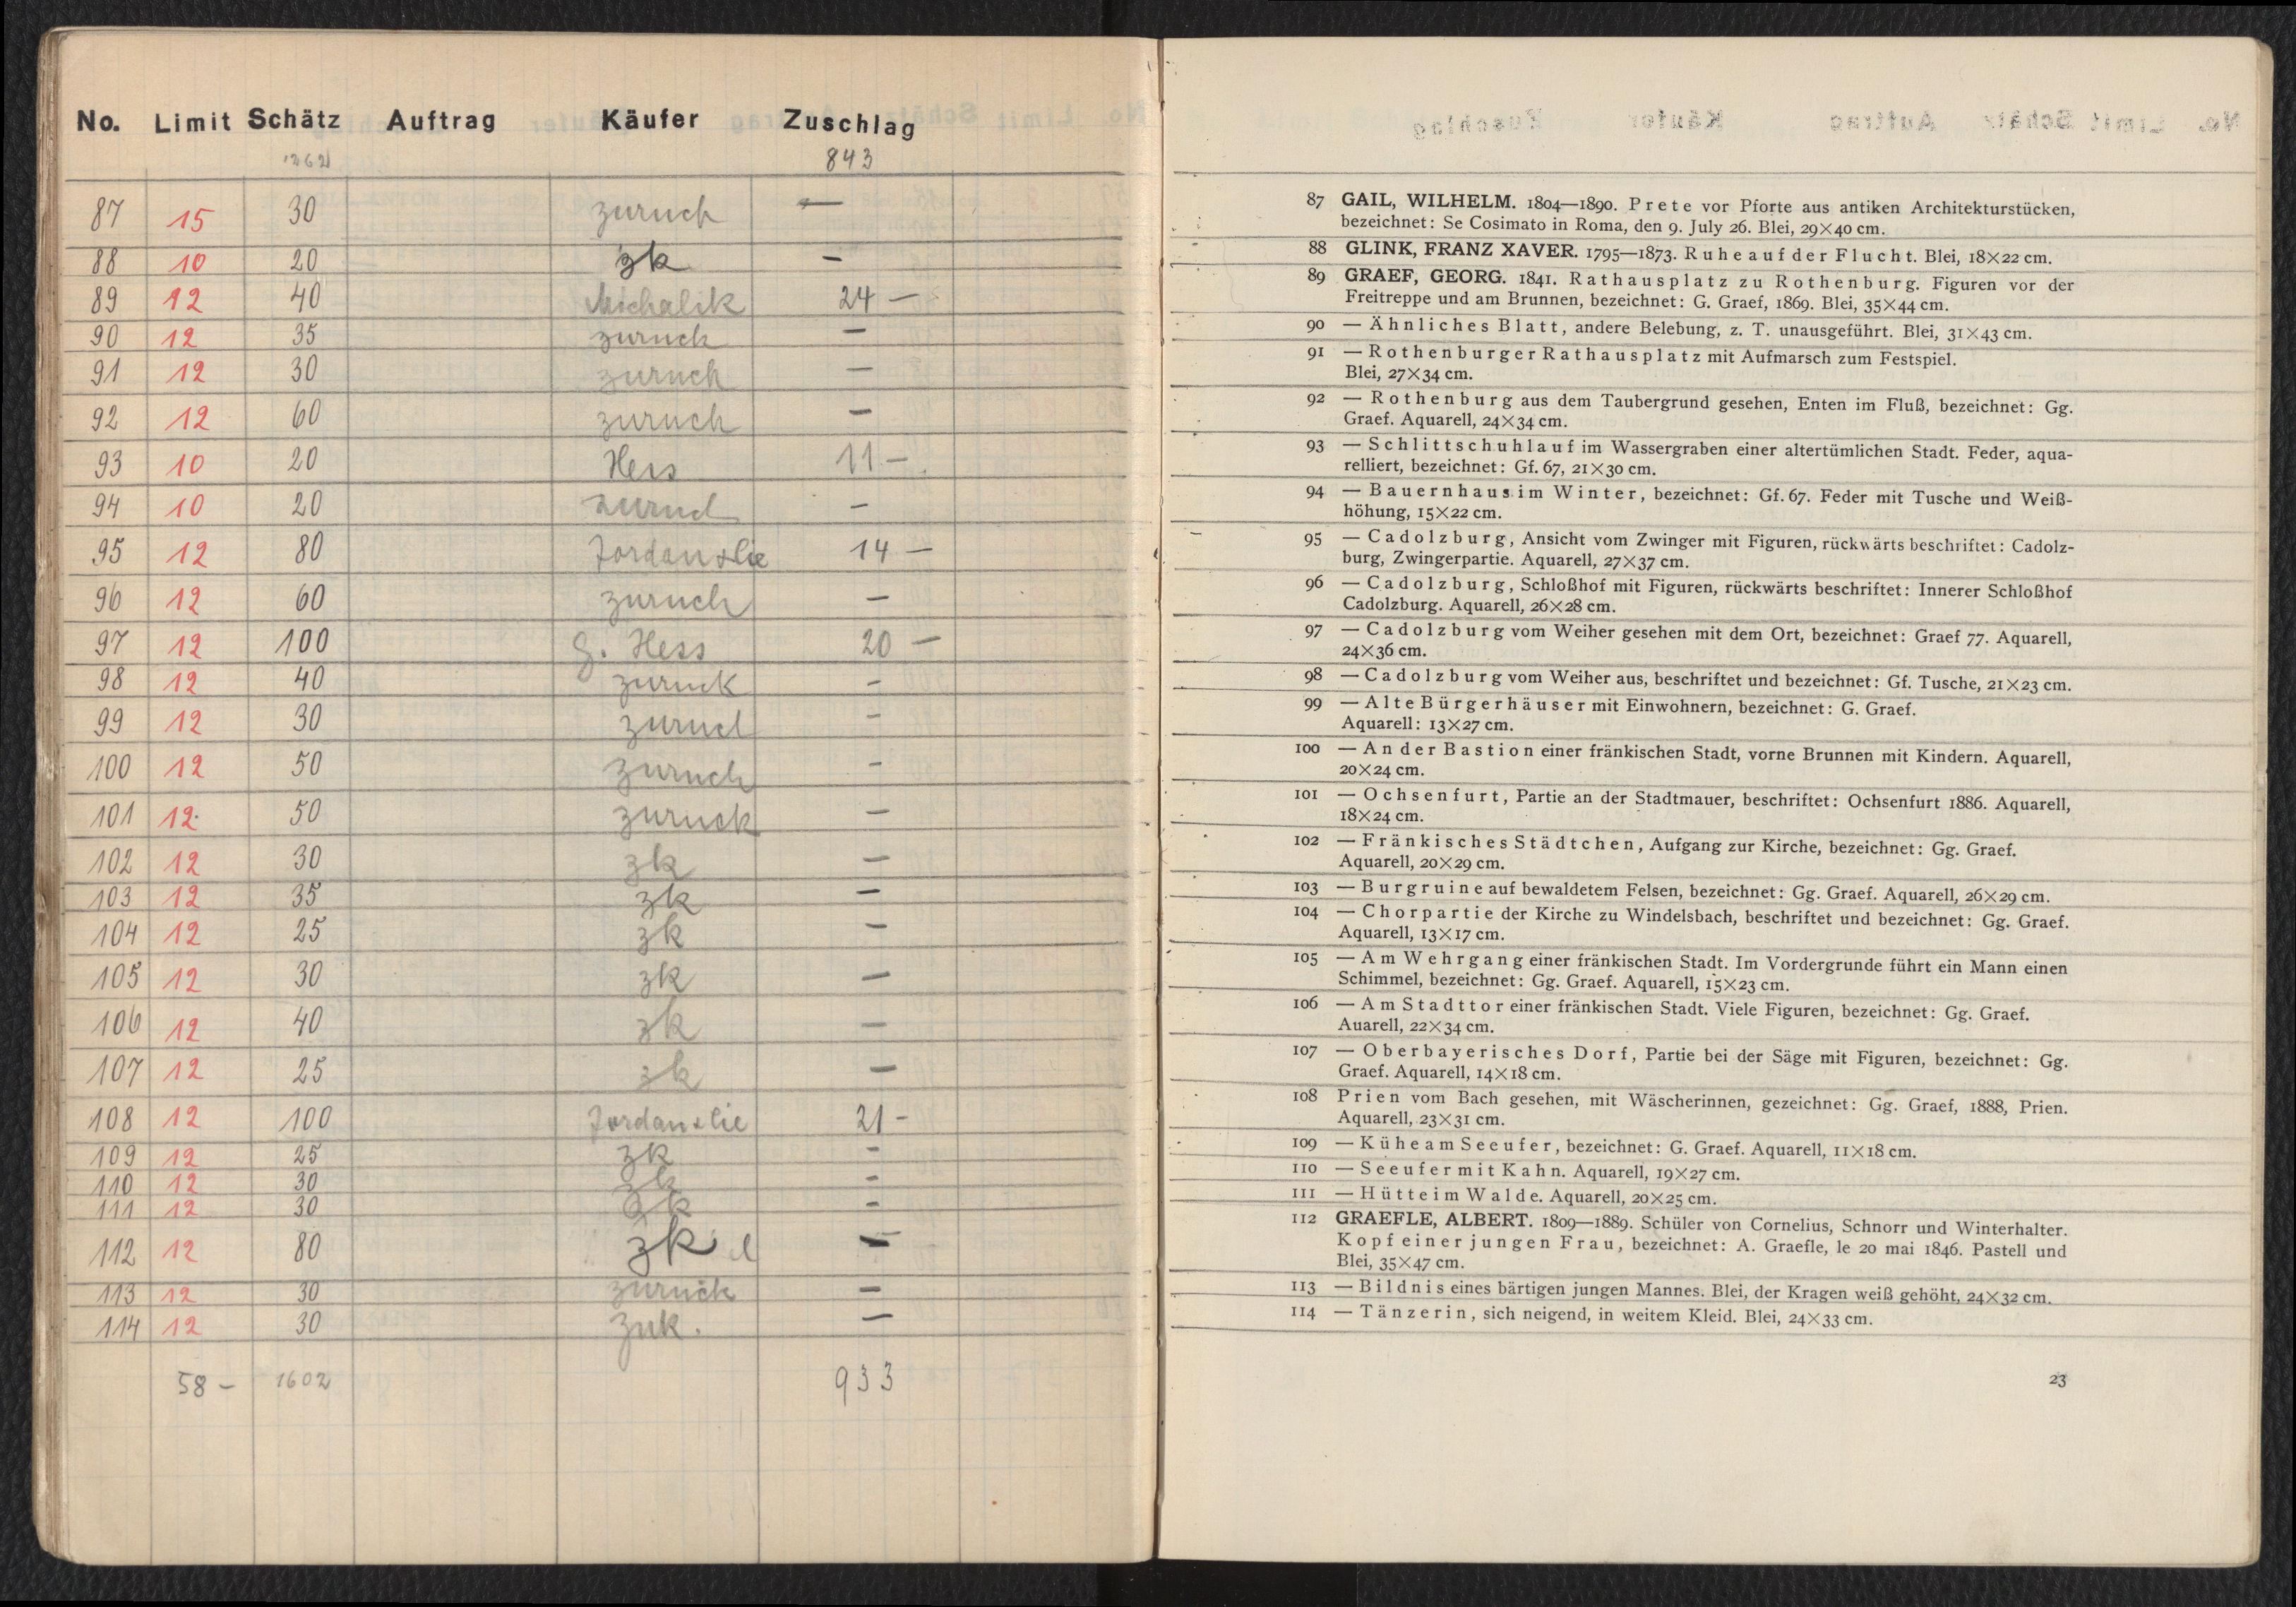 No. Limit Schätz Auftrag Käufer Zuschlag
1262 843
87 15 30 zuruck —
88 10 20 zk —
89 12 40 Michalik 24 —
90 12 35 zuruck —
91 12 30 zuruck —
92 12 60 zuruck —
93 10 20 Hess 11 —
94 10 20 zuruck —
95 12 80 Jordan + Cie 14 —
96 12 60 zuruck —
97 12 100 G. Hess 20 —
98 12 40 zuruck —
99 12 30 zuruck —
100 12 50 zuruck —
101 12 50 zuruck —
102 12 30 zk —
103 12 35 zk —
104 12 25 zk —
105 12 30 zk —
106 12 40 zk —
107 12 25 zk —
108 12 100 Jordan + Cie 21 —
109 12 25 zk —
110 12 30 zk —
111 12 30 zk —
112 12 80 zk —
113 12 30 zurück —
114 12 30 zuk. —
58 — 1602 933
87 GAIL, WILHELM. 1804—1890. Prete vor Pforte aus antiken Architekturstücken,
bezeichnet: Se Cosimato in Roma, den 9. July 26. Blei, 29×40 cm.
88 GLINK, FRANZ XAVER. 1795—1873. Ruhe auf der Flucht. Blei, 18×22 cm.
89 GRAEF, GEORG. 1841. Rathausplatz zu Rothenburg. Figuren vor der
Freitreppe und am Brunnen, bezeichnet: G. Graef, 1869. Blei, 35×44 cm.
90 — Ähnliches Blatt, andere Belebung, z. T. unausgeführt. Blei, 31×43 cm.
91 — Rothenburger Rathausplatz mit Aufmarsch zum Festspiel.
Blei, 27×34 cm.
92 — Rothenburg aus dem Taubergrund gesehen, Enten im Fluß, bezeichnet: Gg.
Graef. Aquarell, 24×34 cm.
93 — Schlittschuhlauf im Wassergraben einer altertümlichen Stadt. Feder, aqua-
relliert, bezeichnet: Gf. 67, 21×30 cm.
94 — Bauernhaus im Winter, bezeichnet: Gf. 67. Feder mit Tusche und Weiß-
höhung, 15×22 cm.
95 — Cadolzburg, Ansicht vom Zwinger mit Figuren, rückwärts beschriftet: Cadolz-
burg, Zwingerpartie. Aquarell, 27×37 cm.
96 — Cadolzburg, Schloßhof mit Figuren, rückwärts beschriftet: Innerer Schloßhof
Cadolzburg. Aquarell, 26×28 cm.
97 — Cadolzburg vom Weiher gesehen mit dem Ort, bezeichnet: Graef 77. Aquarell,
24×36 cm.
98 — Cadolzburg vom Weiher aus, beschriftet und bezeichnet: Gf. Tusche, 21×23 cm.
99 — Alte Bürgerhäuser mit Einwohnern, bezeichnet: G. Graef.
Aquarell: 13×27 cm.
100 — An der Bastion einer fränkischen Stadt, vorne Brunnen mit Kindern. Aquarell,
20×24 cm.
101 — Ochsenfurt, Partie an der Stadtmauer, beschriftet: Ochsenfurt 1886. Aquarell,
18×24 cm.
102 — Fränkisches Städtchen, Aufgang zur Kirche, bezeichnet: Gg. Graef.
Aquarell, 20×29 cm.
103 — Burgruine auf bewaldetem Felsen, bezeichnet: Gg. Graef. Aquarell, 26×29 cm.
104 — Chorpartie der Kirche zu Windelsbach, beschriftet und bezeichnet: Gg. Graef.
Aquarell, 13×17 cm.
105 — Am Wehrgang einer fränkischen Stadt. Im Vordergrunde führt ein Mann einen
Schimmel, bezeichnet: Gg. Graef. Aquarell, 15×23 cm.
106 — Am Stadttor einer fränkischen Stadt. Viele Figuren, bezeichnet: Gg. Graef.
Auarell, 22×34 cm.
107 — Oberbayerisches Dorf, Partie bei der Säge mit Figuren, bezeichnet: Gg.
Graef. Aquarell, 14×18 cm.
108 Prien vom Bach gesehen, mit Wäscherinnen, gezeichnet: Gg. Graef, 1888, Prien.
Aquarell, 23×31 cm.
109 — Kühe am Seeufer, bezeichnet: G. Graef. Aquarell, 11×18 cm.
110 — Seeufer mit Kahn. Aquarell, 19×27 cm.
111 — Hütte im Walde. Aquarell, 20×25 cm.
112 GRAEFLE, ALBERT. 1809—1889. Schüler von Cornelius, Schnorr und Winterhalter.
Kopf einer jungen Frau, bezeichnet: A. Graefle, le 20 mai 1846. Pastell und
Blei, 35×47 cm.
113 — Bildnis eines bärtigen jungen Mannes. Blei, der Kragen weiß gehöht, 24×32 cm.
114 — Tänzerin, sich neigend, in weitem Kleid. Blei, 24×33 cm.
23